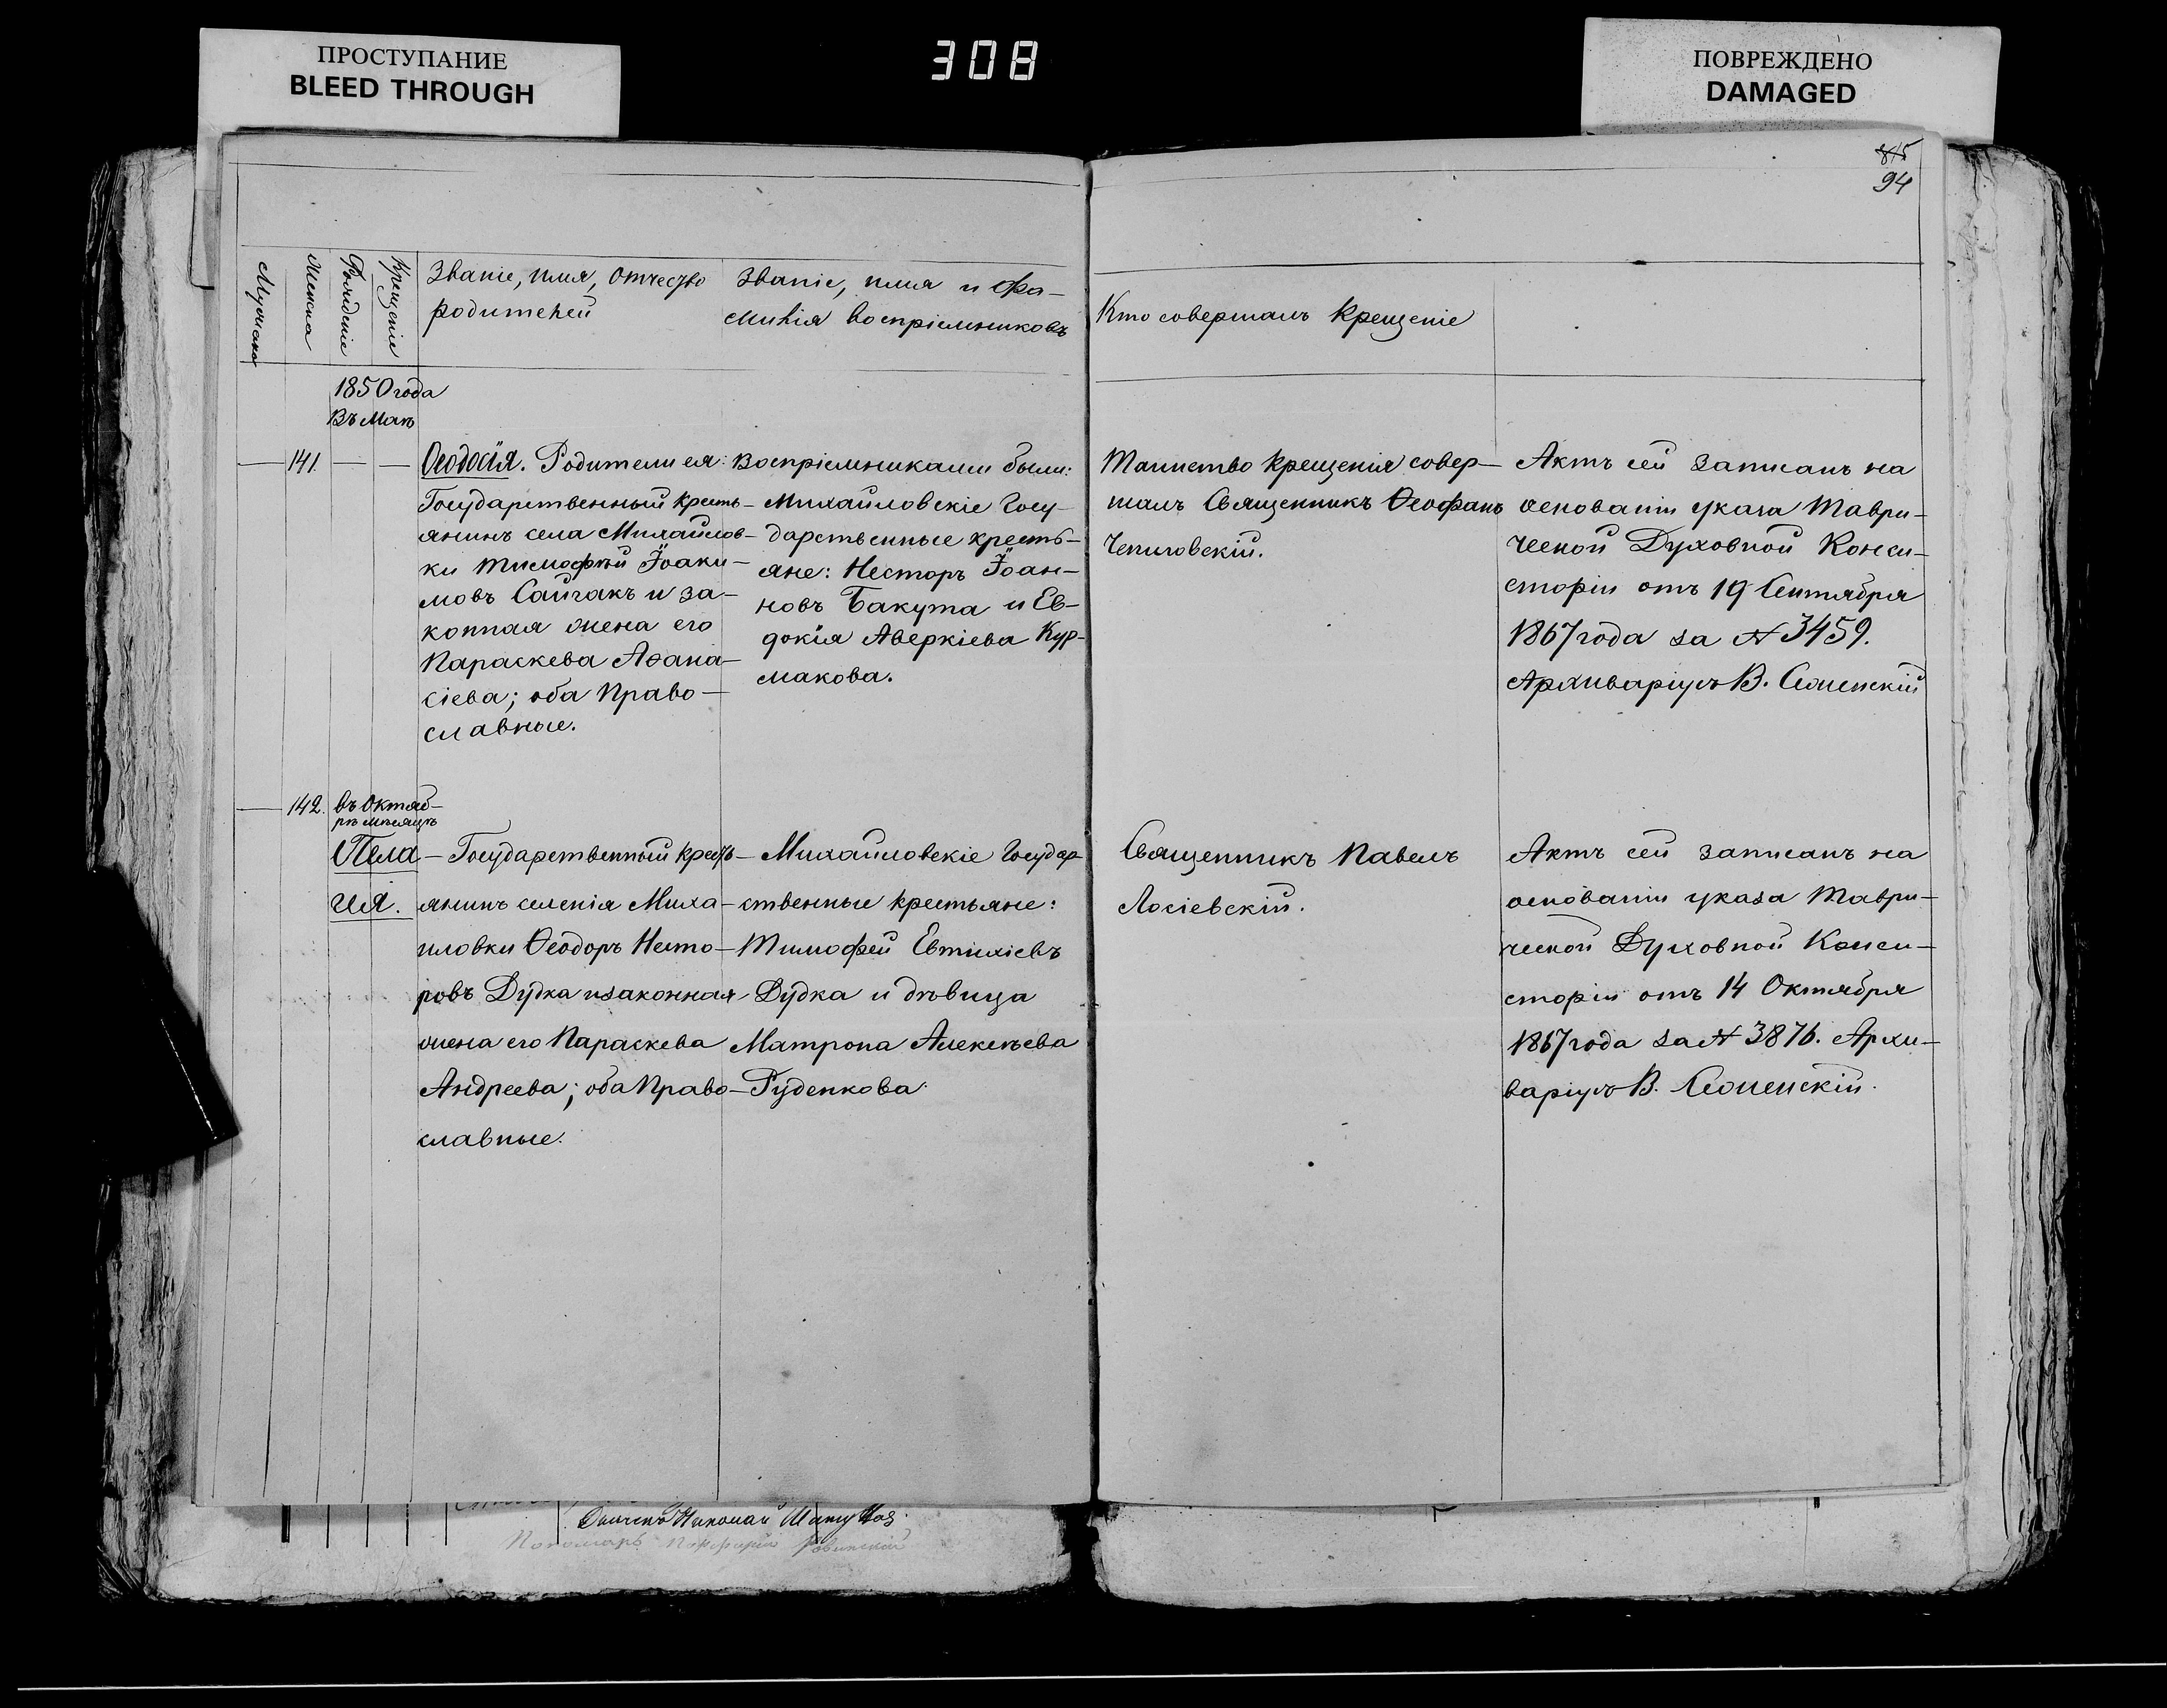 ПРОСТУПАНИЕ
BLEED THROUGH
308
ПОВРЕЖДЕНО
DAMAGED
94
Мужеска
Женска
Рожденіе
Крещеніе
Званіе, имя, отчество
родителей
Званіе, имя и фа-
милія воспріемниковъ
Кто совершалъ крещеніе
1850 года
Въ Маѣ
141.
Ѳеодосія. Родители ея:
Государственный кресть-
янинъ села Михайлов-
ки Тимофей Іоаки-
мовъ Сайгакъ и за-
конная жена его
Параскева Аѳана-
сіева; оба Право-
славные.
Воспріемниками были:
Михайловскіе Госу-
дарственные кресть-
яне: Несторъ Іоан-
новъ Бакута и Ев-
докія Аверкіева Кур-
макова.
Таинство крещенія совер-
шалъ Священникъ Ѳеофанъ
Чепиговскій.
Актъ сей записанъ на
основаніи указа Таври-
ческой Духовной Конси-
сторіи отъ 19 Сентября
1867 года за № 3459.
Архиваріусъ В.
142.
въ Октяб-
рѣ мѣсяцѣ
Пела-
гія.
Государственный кресть-
янинъ селенія Миха-
иловки Ѳеодоръ Несто-
ровъ Дудка и законная
жена его Параскева
Андреева; оба Право-
славные.
Михайловскіе Государ-
ственные крестьяне:
Тимофей Евтихіевъ
Дудка и дѣвица
Матрона Алексѣева
Руденкова.
Священникъ Павелъ
Лосіевскій.
Актъ сей записанъ на
основаніи указа Таври-
ческой Духовной Конси-
сторіи отъ 14 Октября
1867 года за № 3876. Архи-
варіусъ В.
Николай
Пономарь